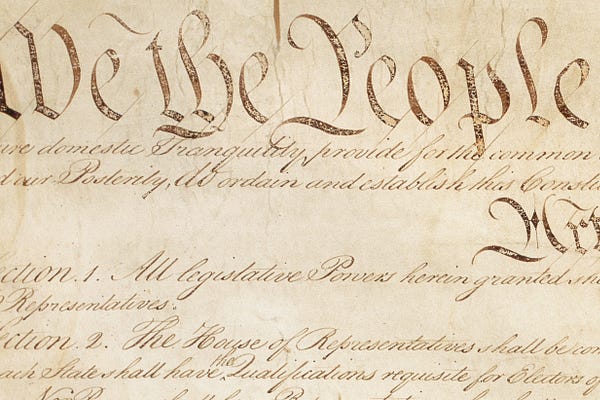 We the People
ure domestic Tranquility, provide for the common
d our Posterity, do ordain and establish this Constit
Arti
ection. 1. All legislative Powers herein granted sha
Representatives.
ection. 2. The House of Representatives shall be com
each State shall have the Qualifications requisite for Electors of
No Person shall be a Representative